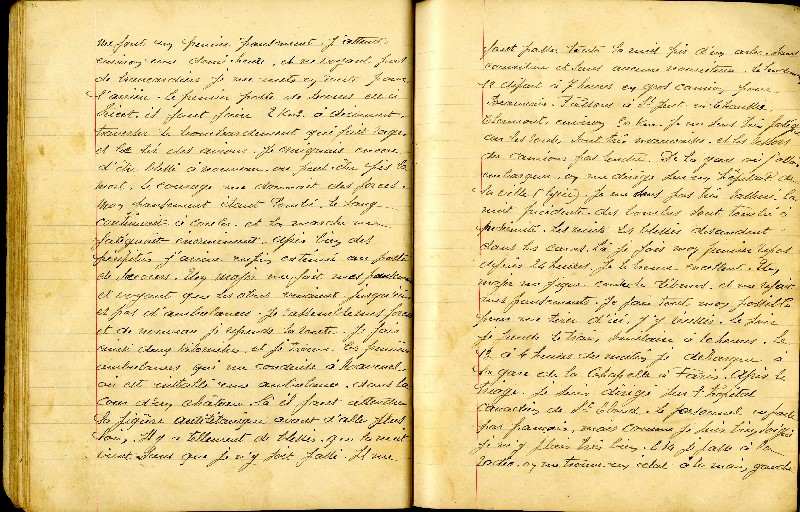 me fait un premier pansement. J'attend
environ une demi heure, et ne voyant pas
de brancardiers je me mets en route pour
l'arrière. Le premier poste de secours est à
il faut faire 2 Km. à découvert
traverser le bombardement qui fait rage
et le tir des avions. Je craignais encore
d'être blessé à nouveau, ou peut-être pis la
mort. Le courage me donnait des forces.
Mon pansement étant tombé le sang
continuait à couler, et la marche me
fatiguait énormément. Après bien des
péripéties j'arrive enfin exténué au poste
de secours. Un major me fait mes
et voyant que les obus venaient jusqu'ici
et pas d'ambulances je rassemble mes forces
et de nouveau je reprends la route. Je fais
deux kilomètres et je trouve les premières
ambulances qui me conduit à
où est installée une ambulance dans la
cour d'un château. Là il faut attendre
la piqûre antitétanique avant d'aller plus
loin. Il y a tellement de blessés que la nuit
vient sans que je n'y sois passé. Il me
faut passer toute la nuit près d'un arbre sans
couverture et sans aucune nourriture. Le
12 départ à 7 heures en gros camion pour
Beauvais. Passons à St Just en Chaussée
Clermont, environ Km. Je me sens très fatigué
car les routes sont très mauvaises et les ressorts
du camion pas tendre. De la gare où j'allais
embarquer, on me dirige sur un hôpital de
la ville (lycée). Je ne suis pas très rassuré la
nuit précédente des bombes sont tombées à
proximité. Les nuits les blessés descendent
dans les caves. Là je fais mon premier repas
depuis heures. Je le trouve excellent. Un
major me pique contre le tétanos et me refait
mes pansements. Je fais tout mon possible
pour me tirer d'ici, j'y réussis. Le soir
je prends le train sanitaire à heures. Le
13 à 4 heures du matin je débarque à
la gare de la Chapelle à Paris. Après le
triage je suis dirigé sur l'hôpital
canadien de St Cloud. Le personnel ne parle
pas français, mais comme je suis bien soigné
je m'y plais très bien. je passe à la
radio. on me trouve un éclat à la main gauche